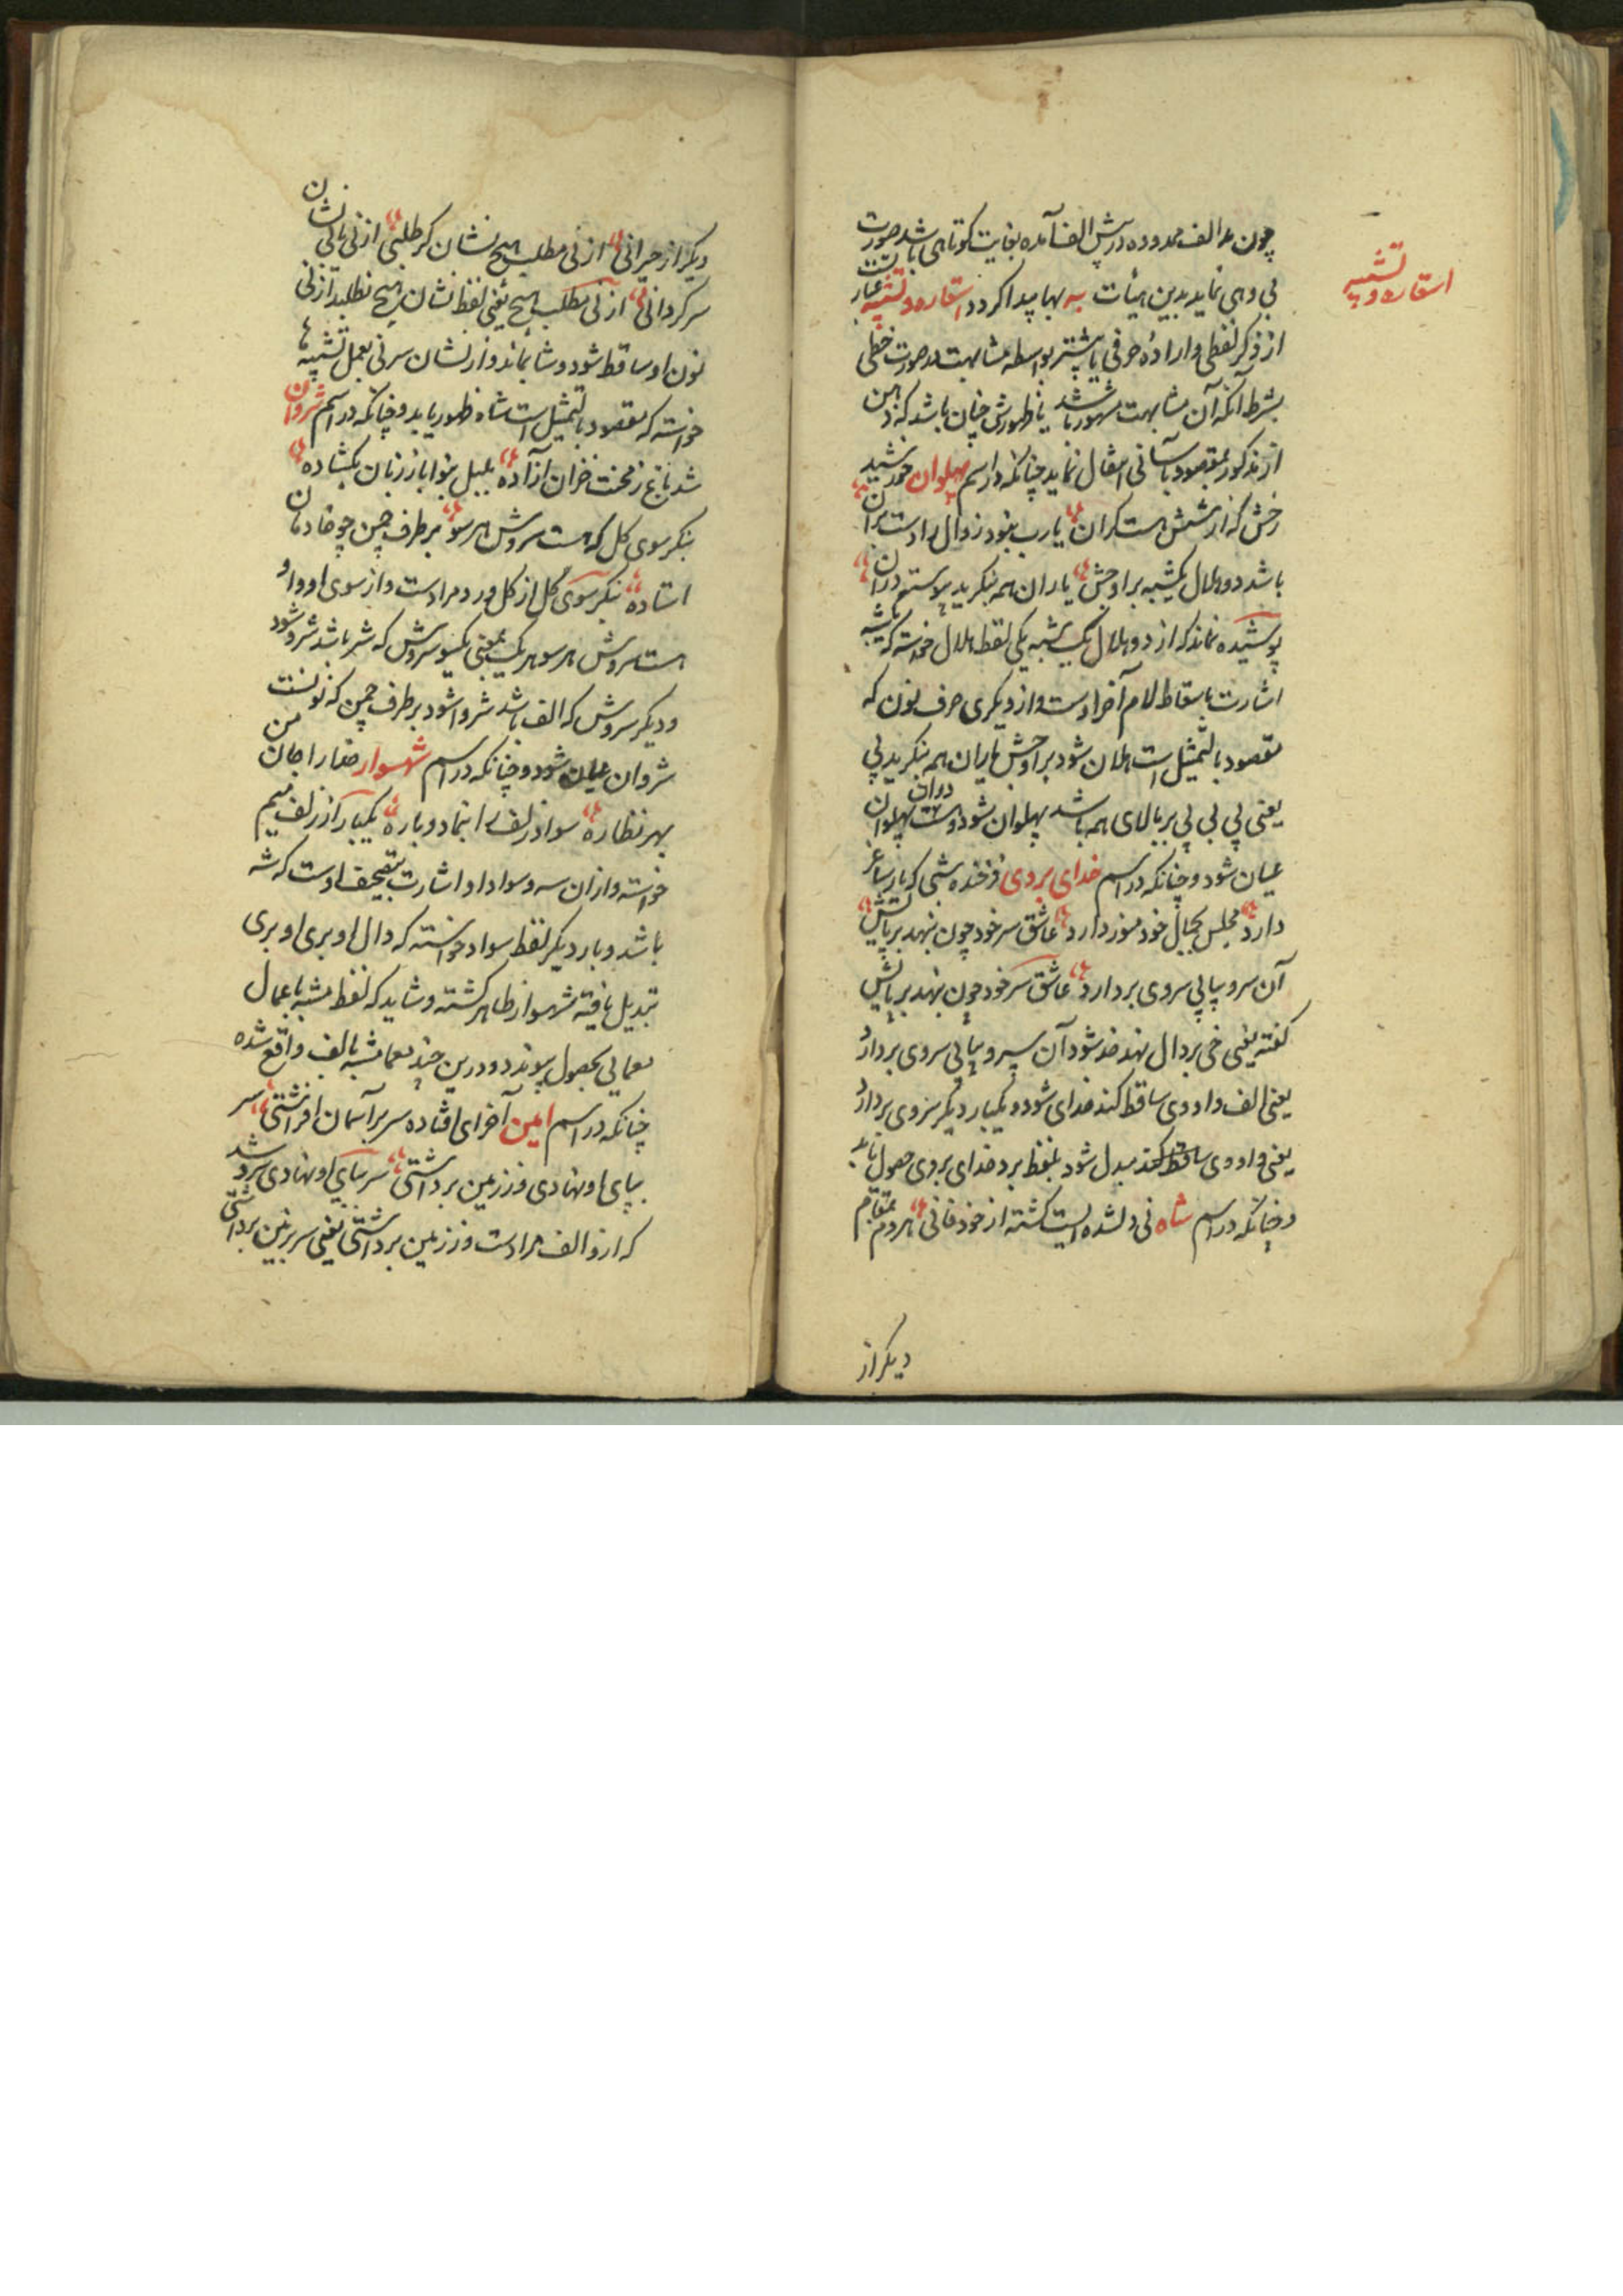 استعاره و تشبیه
چون مد الف ممدوده در پیش الف آمده بغایت کوتاهی باشد صورت
بی وهی نماید بدین هیأت به بها پیدا کردد استعاره و تشبیه عبار تست
از ذکر لفظی و ارادهٔ حرفی یا بیشتر بواسطه مشابهت در صورت خطی
بشرط آنکه آن مشابهت مشهور باشد یا ظهورش چنان باشد که ذهن
از مذکور بمقصود بآسانی انتقال نماید چنانکه در اسم پهلوان خورشید
رخش که از شش هست کران یارب بنود زوال را دست بران
باشد دو هلال یکشبه بر اوجش یاران همه بنکرید پیوسته دران
پوشیده نماند که از دو هلال یکشبه یکی لفظ هلال خواسته که یکشبه
اشارت باسقاط لام آخر اوست و از دیکری حرف نون که
مقصود بالتمثیل است هلان شود بر اوجش یاران همه بنکرید پی
یعنی پی بی پی بر بالای همه باشد پهلوان شود وست دران پهلوان
عیان شود و چنانکه در اسم خدای بردی فرخنده شبی که یار ساغر
دارد مجلس بجمال خود منور دارد عاشق سر خود چون بنهد بر پایش
آن سرو بپایی سروی بردارد عاشق سر خود چون بنهد بر پایش
کفته یعنی خی بر دال نهد خد شود آن سرو بپایی سروی بردارد
یعنی الف واد وی ساقط کند خدای شود و یکبار دیکر سروی بردارد
یعنی واد وی ساقط کند مبدل شود بلفظ برد خدای بردی حصول یابد
و چنانکه در اسم شاه نی دلشده ایست کشته از خود فانی هر دم بمقام
دیکر از
دیکر از حیرانی از نی مطلب هیچ نشان کر طلبی از نی یابی نشان
سرکردانی از نی مطلب هیچ یعنی لفظ نشان هیچ نطلبد از نی
نون او ساقط شود و شا بماند و از نشان سر نی بعمل تشبیه ها
خواسته که مقصود بالتمثیل است شاه ظهور یابد و چنانکه در اسم شروان
شد باغ ز محنت خزان آزاده بلبل بنوا باز زبان بکشاده
بنکر سوی کل که هست سروش هر سو بر طرف چمن چو خادمان
استاده بنکر سوی کل از کل ورد مراد است و از سوی او واو
هست سروش هر سو هر یک یعنی یکسو سروش که شر باشد شرو شود
و دیکر سروش که الف باشد شروا شود بر طرف چمن که نونست
شروان عیان شود و چنانکه در اسم شهسوار صفار اجان من
بهر نظاره سواد زلف را بنما دوباره یکبار از زلف میم
خواسته و از آن سه و سواد او اشارت بتصحیف اوست که شه
باشد و بار دیکر لفظ سواد خواسته که دال او بری او بری
تبدیل یافته شهسوار ظاهر کشته و شاید که لفظ مشبه باعمال
معمایی بحصول پیوندد و درین چند معما مشبه بالف واقع شده
چنانکه در اسم امین آخر ای افتاده سر بر آسمان افراشتی سر
بپای او نهادی و ز زمین برداشتی سر بپای او نهادی سر و شد
که ازو الف مراد است و ز زمین برداشتی یعنی سر بزمین برداشتی